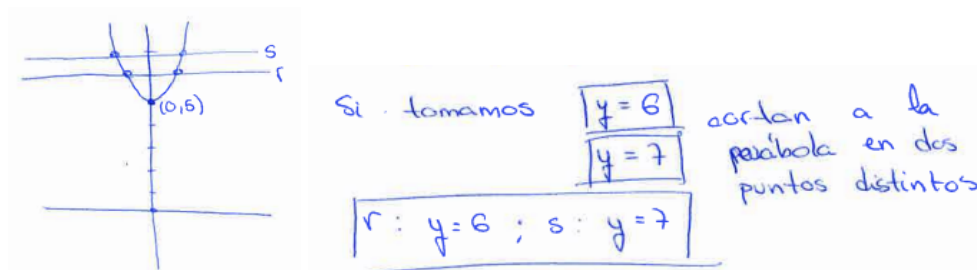 s
r
(0,5)
Si tomamos y = 6 cortan a la
y = 7 parábola en dos
puntos distintos
r: y=6 ; s: y=7